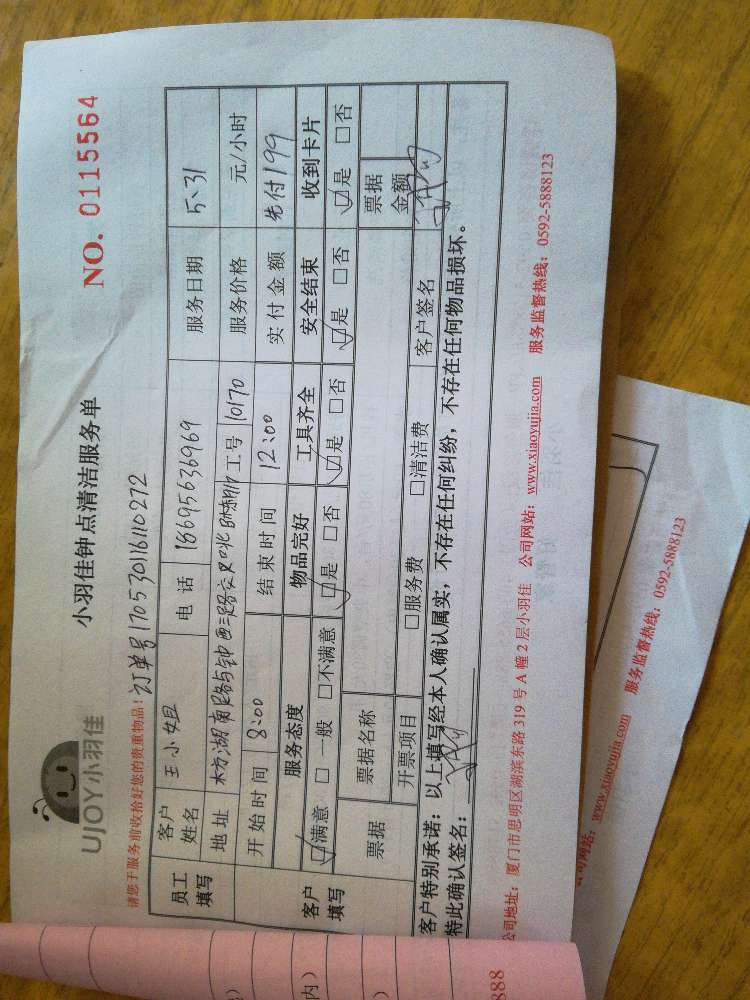 UJOY小羽佳
小羽佳钟点清洁服务单
NO. 0115564
请您于服务前收拾好您的贵重物品！订单号170530116110272
员工填写
客户姓名 王小姐 电话 18695636969 服务日期 5、31
地址 枋湖南路与钟 路交叉口北 工号 10170 服务价格 元/小时
开始时间 8:00 结束时间 12:00 实付金额 先付199
客户填写
服务态度 物品完好 工具齐全 安全结束 收到卡片
☑满意 □一般 □不满意 ☑是 □否 ☑是 □否 ☑是 □否 ☑是 □否
票据 票据名称 票据金额
开票项目 □服务费 □清洁费 客户签名
客户特别承诺：以上填写经本人确认属实，不存在任何纠纷，不存在任何物品损坏。
特此确认签名：
公司地址：厦门市思明区湖滨东路 319 号 A 幢 2 层小羽佳 公司网站：www.xiaoyujia.com 服务监督热线：0592-5888123
公司网站：www.xiaoyujia.com 服务监督热线：0592-5888123
内）
888